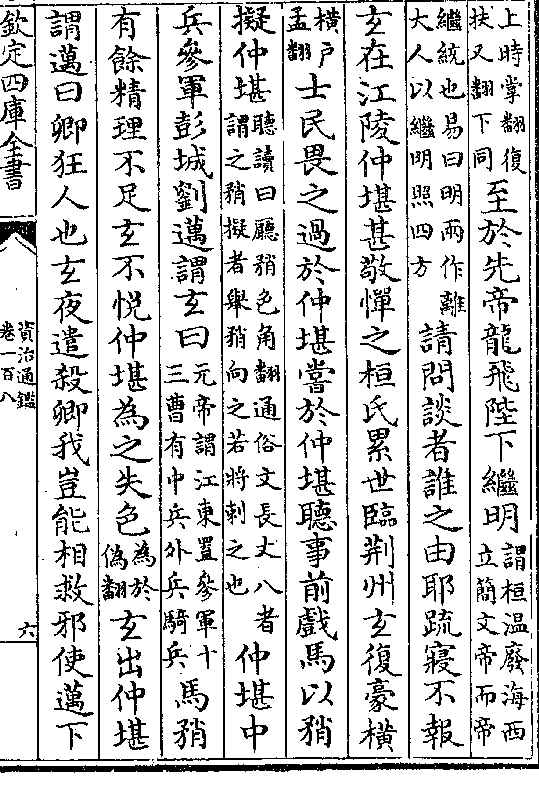 上時掌翻復
扶又翻下同
至於先帝龍飛陛下繼明
謂桓温廢海西
立簡文帝而帝
繼統也易曰明兩作離
大人以繼明照四方
請問談者誰之由耶䟽寢不報
玄在江陵仲堪甚敬憚之桓氏累世臨荆州玄復豪橫
橫户
孟翻
士民畏之過於仲堪嘗於仲堪聽事前戲馬以矟
擬仲堪
聽讀曰廳矟色角翻通俗文長丈八者
謂之矟擬者舉矟向之若將刺之也
仲堪中
兵參軍彭城劉邁謂玄曰
元帝謂江東置參軍十
三曹有中兵外兵騎兵
馬矟
有餘精理不足玄不悦仲堪為之失色
為於
偽翻
玄出仲堪
謂邁曰卿狂人也玄夜遣殺卿我豈能相救邪使邁下
欽定四庫全書
資治通鑑
卷一百八
六